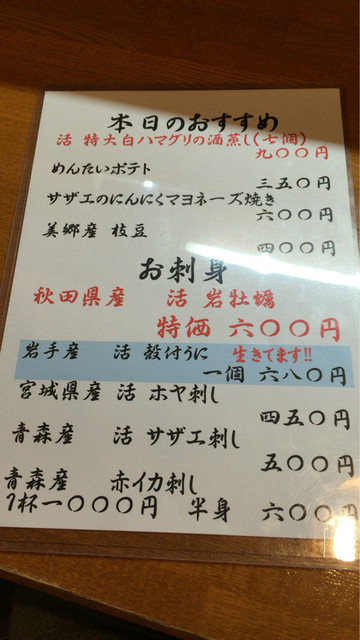 本日のおすすめ
活 特大白ハマグリの酒蒸し(七個)
九〇〇円
めんたいポテト
三五〇円
サザエのにんにくマヨネーズ焼き
六〇〇円
美郷産 枝豆
四〇〇円
お刺身
秋田県産 活 岩牡蠣
特価 六〇〇円
岩手産 活 殻付うに 生きてます!!
一個 六八〇円
宮城県産 活 ホヤ刺し
四五〇円
青森産 活 サザエ刺し
五〇〇円
青森産 赤イカ刺し
1杯一〇〇〇円 半身 六〇〇円